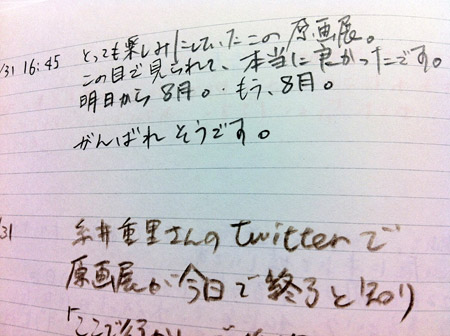 /31 16:45 とっても楽しみにしていたこの原画展。
この目で見られて、本当に良かったです。
明日から8月。もう、8月。
がんばれそうです。
/31 糸井重里さんのtwitterで
原画展が今日で終了と知り
「ここで